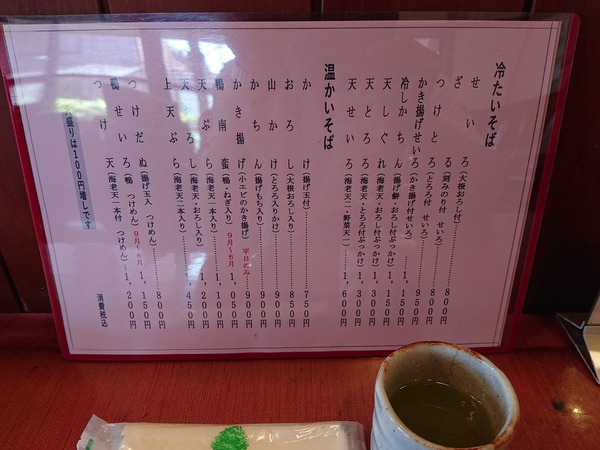 冷たいそば
せいろ(大根おろし付)
ざる(刻みのり付 せいろ)……800円
つけとろ(とろろ付 せいろ)
かき揚げせいろ(かき揚げ付せいろ)
冷しかちん(揚げ餅・おろし付ぶっかけ)
天しぐれ(海老天・おろし付ぶっかけ)
天とろろ(海老天・とろろ付ぶっかけ)…1,300円
天せいろ(海老天二・野菜天一)……1,600円
温かいそば
かけ(揚げ玉付)……750円
おろし(大根おろし入り)……850円
山かけ(とろろ入りかけ)……900円
かちん(揚げもち入り)……900円
かき揚げ(小エビのかき揚げ) 平日のみ…900円
鴨南蛮(鴨・ねぎ入り) 9月~6月 1,050円
天ぷら(海老天入り)……1,100円
天おろし(海老天・おろし入り)……1,200円
上天ぷら(海老天二本入り)……1,450円
つけだぬ(揚げ玉入 つけめん)……800円
鴨せいろ(鴨 つけめん) 9月~6月 1,150円
つけ天(海老天一本付 つけめん)…1,200円
盛りは100円増しです
消費税込